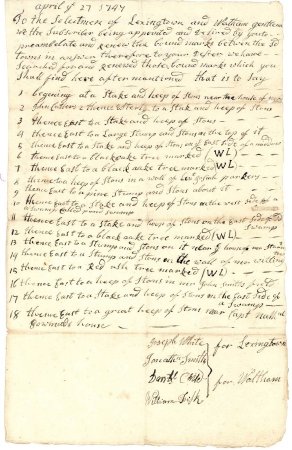 april ye 27 1747
To the Selectmen of Lexington and Waltham gentlemen
we the Subscribers being appointed and desired by you to
preambelate and renew the bound marks between the
towns in answer thereto to your desire we have
Searched for and renewed those bound marks which you
Shall find here after mentioned that is to Say
1 begening at a Stake and heep of Stons near the house of
2 John thence to a Stake and heep of Stons
3 thence East to a Stake and heep of Stons
4 thence East to a Large Stump and Stons on the top of it
5 thence East to a Stake and heep of Stons on ye East Side of a
6 thence East to a black oake tree marked (WL)
7 thence East to a black oake tree marked (WL)
8 thence to a heep of Stons in a wall of parkers
9 thence East to a pine Stump and Stons about it
10 thence East to a Stake and heep of Stons on the west Side of a
Swamp called pond Swamp
11 thence East to a Stake and heep of Stons on the East Side of Sd Swamp
12 thence East to a black oake tree marked (WL)
13 thence East to a Stump and Stons on it near
14 thence East to a Stump and Stons on the wall of mr
15 thence East to a Red ash tree marked (WL)
16 thence East to a heep of Stons in mr John Smiths field
17 thence East to a Stake and heep of Stons on the East Side of a Swamp
18 thence East to a great heep of Stons near Capt
house
Joseph White
Smith
for Lexington
Danll
William Fisk
for Waltham